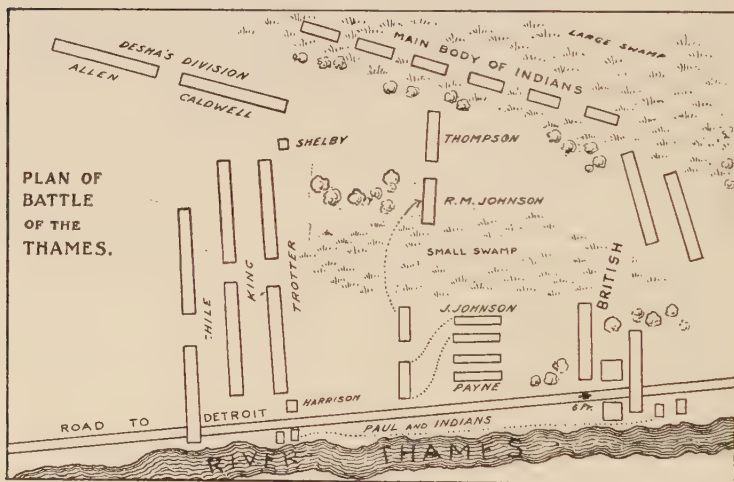 PLAN OF
BATTLE
OF THE
THAMES.
DESHA'S DIVISION
ALLEN
CALDWELL
MAIN BODY OF INDIANS
LARGE SWAMP
SHELBY
THOMPSON
R.M. JOHNSON
SMALL SWAMP
HILE
KING
TROTTER
J. JOHNSON
PAYNE
BRITISH
HARRISON
6 Pr.
ROAD TO DETROIT
PAUL AND INDIANS
RIVER THAMES